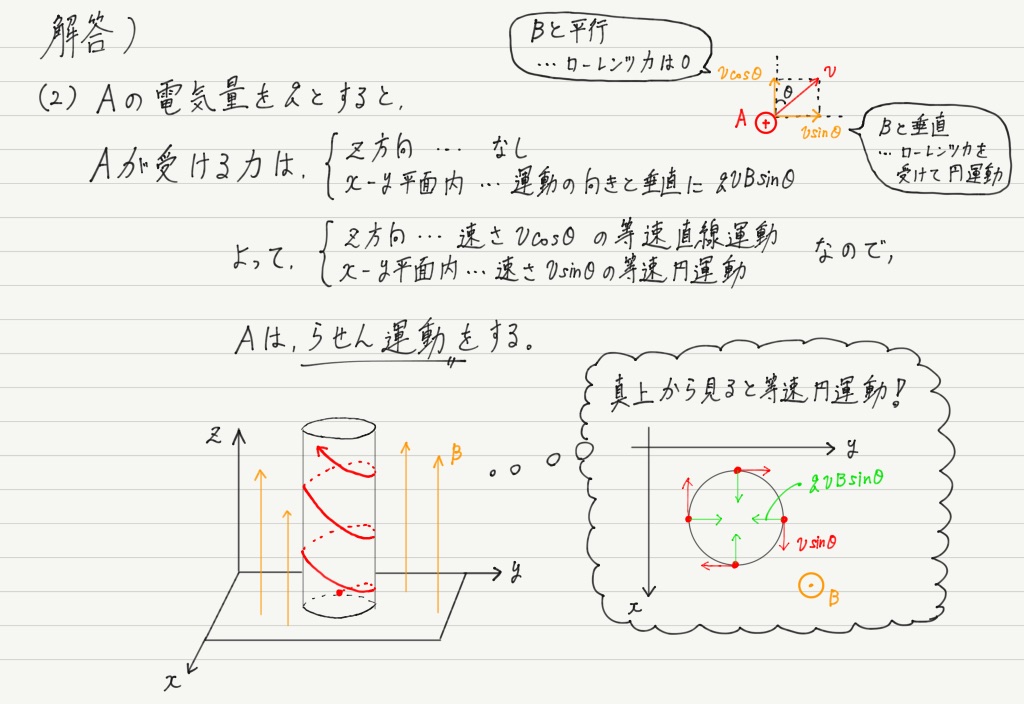 解答)
Bと平行
… ローレンツ力は0
vcosθ
v
θ
A
+
vsinθ
Bと垂直
… ローレンツ力を
受けて円運動
(2) Aの電気量をqとすると,
Aが受ける力は,
z方向 … なし
x-y平面内 … 運動の向きと垂直に qvBsinθ
よって,
z方向 … 速さ vcosθ の等速直線運動
x-y平面内 … 速さ vsinθの等速円運動
なので,
Aは,らせん運動をする。
真上から見ると等速円運動!
z
B
y
x
y
qvBsinθ
vsinθ
B
x